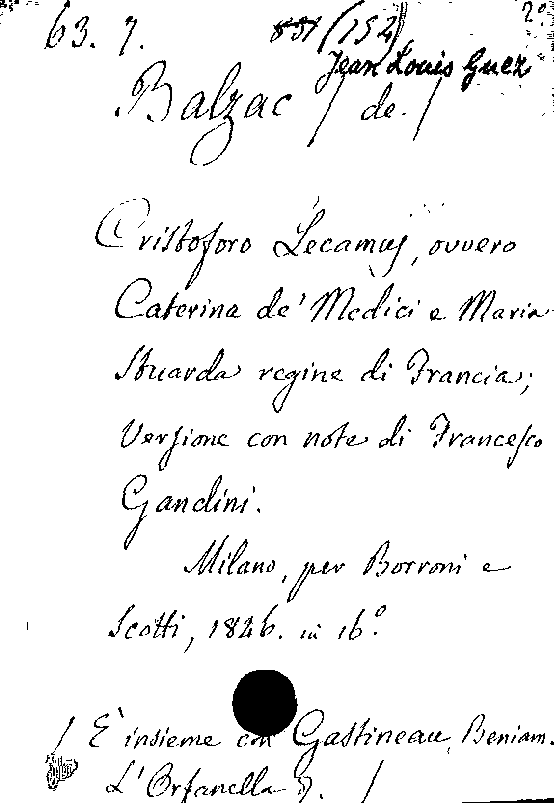 63. 7. 851 (152) 2°
Jean Louis Guez
Balzac / de. /
Cristoforo Lecamus, ovvero
Caterina de' Medici e Maria
Stuarda regine di Francia;
Versione con note di Francesco
Gandini.
Milano, per Borroni e
Scotti, 1846. in 16°.
/ È insieme con Gastineau, Beniam.
L'Orfanella /